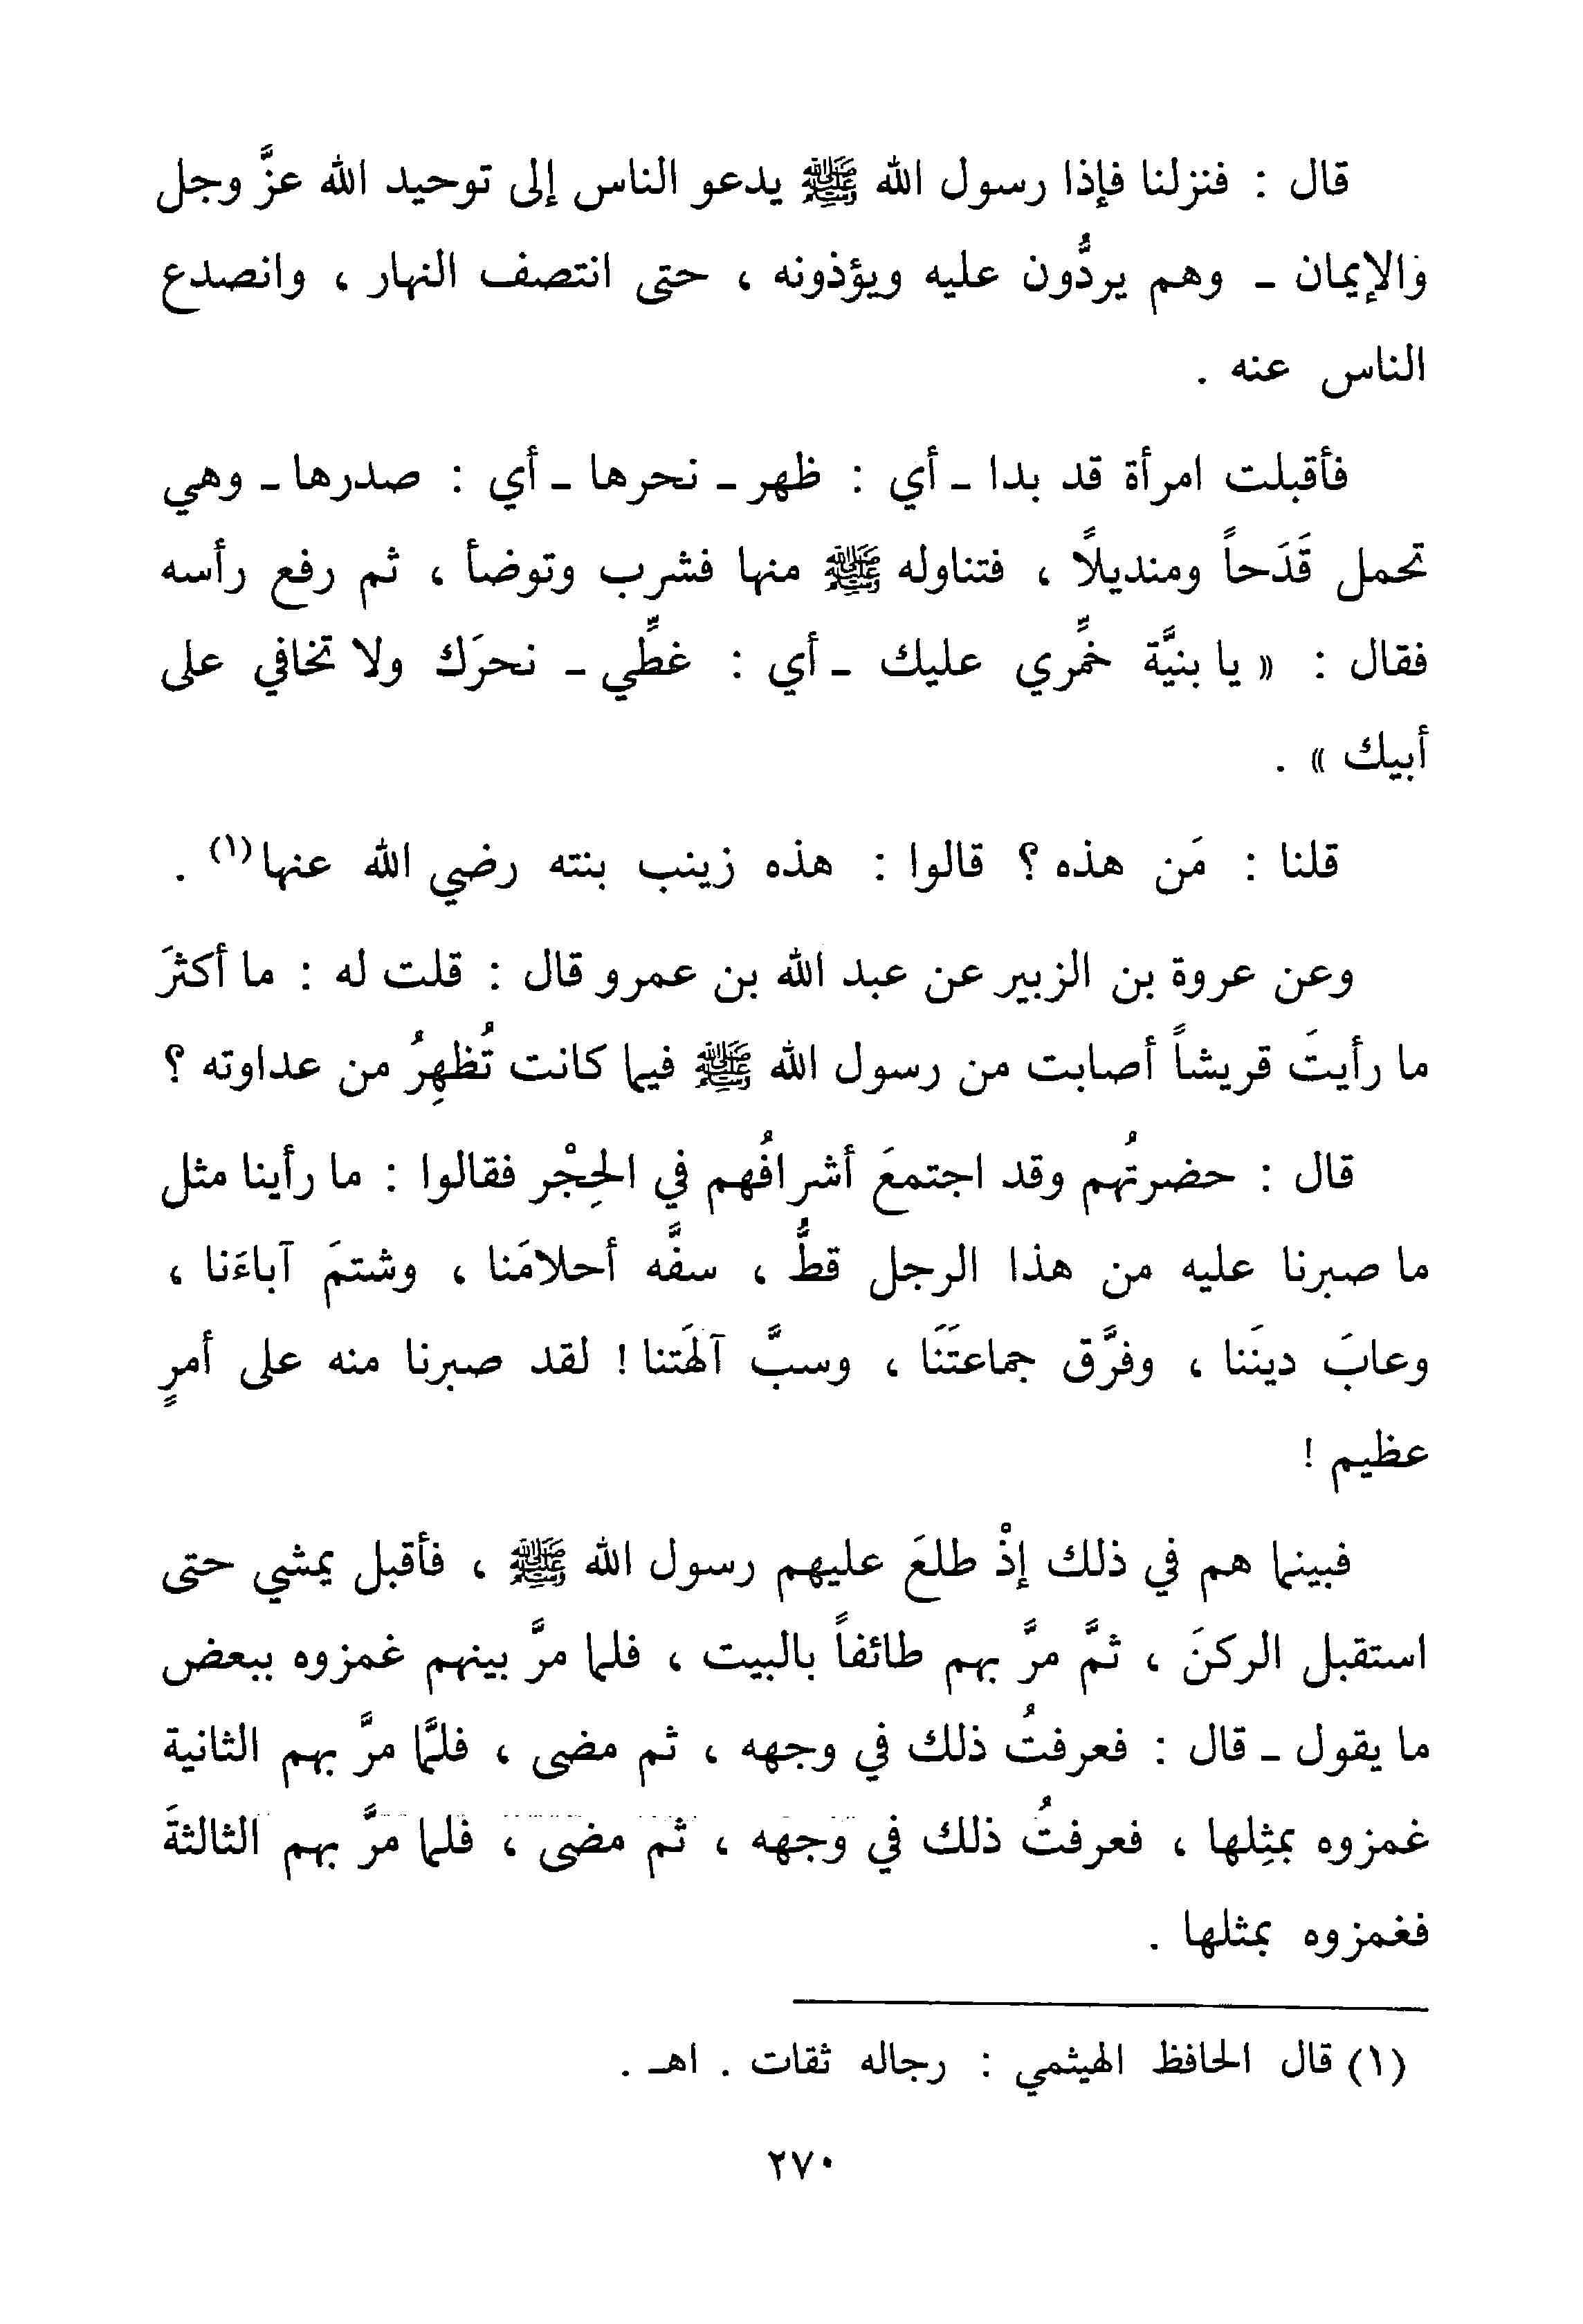 قال : فنزلنا فإذا رسول الله ﷺ يدعو الناس إلى توحيد الله عزَّ وجل
والإيمان - وهم يردُّون عليه ويؤذونه ، حتى انتصف النهار ، وانصدع
الناس عنه .
فأقبلت امرأة قد بدا - أي : ظهر - نحرها - أي : صدرها - وهي
تحمل قَدَحاً ومنديلاً ، فتناوله ﷺ منها فشرب وتوضأ ، ثم رفع رأسه
فقال : « يا بنيَّة خمِّري عليك - أي : غطِّي - نحرَك ولا تخافي على
أبيك » .
قلنا : مَن هذه ؟ قالوا : هذه زينب بنته رضي الله عنها(١) .
وعن عروة بن الزبير عن عبد الله بن عمرو قال : قلت له : ما أكثرَ
ما رأيتَ قريشاً أصابت من رسول الله ﷺ فيما كانت تُظهِرُ من عداوته ؟
قال : حضرتُهم وقد اجتمعَ أشرافُهم في الحِجْر فقالوا : ما رأينا مثل
ما صبرنا عليه من هذا الرجل قطُّ ، سفَّه أحلامَنا ، وشتمَ آباءَنا ،
وعابَ دينَنا ، وفرَّق جماعتَنَا ، وسبَّ آلهَتنا ! لقد صبرنا منه على أمرٍ
عظيم !
فبينما هم في ذلك إذْ طلعَ عليهم رسول الله ﷺ ، فأقبل يمشي حتى
استقبل الركنَ ، ثمَّ مرَّ بهم طائفاً بالبيت ، فلما مرَّ بينهم غمزوه ببعض
ما يقول - قال : فعرفتُ ذلك في وجهه ، ثم مضى ، فلمَّا مرَّ بهم الثانية
غمزوه بمثِلها ، فعرفتُ ذلك في وجهه ، ثم مضى ، فلما مرَّ بهم الثالثةَ
فغمزوه بمثلها .
(١) قال الحافظ الهيثمي : رجاله ثقات . اهـ .
٢٧٠